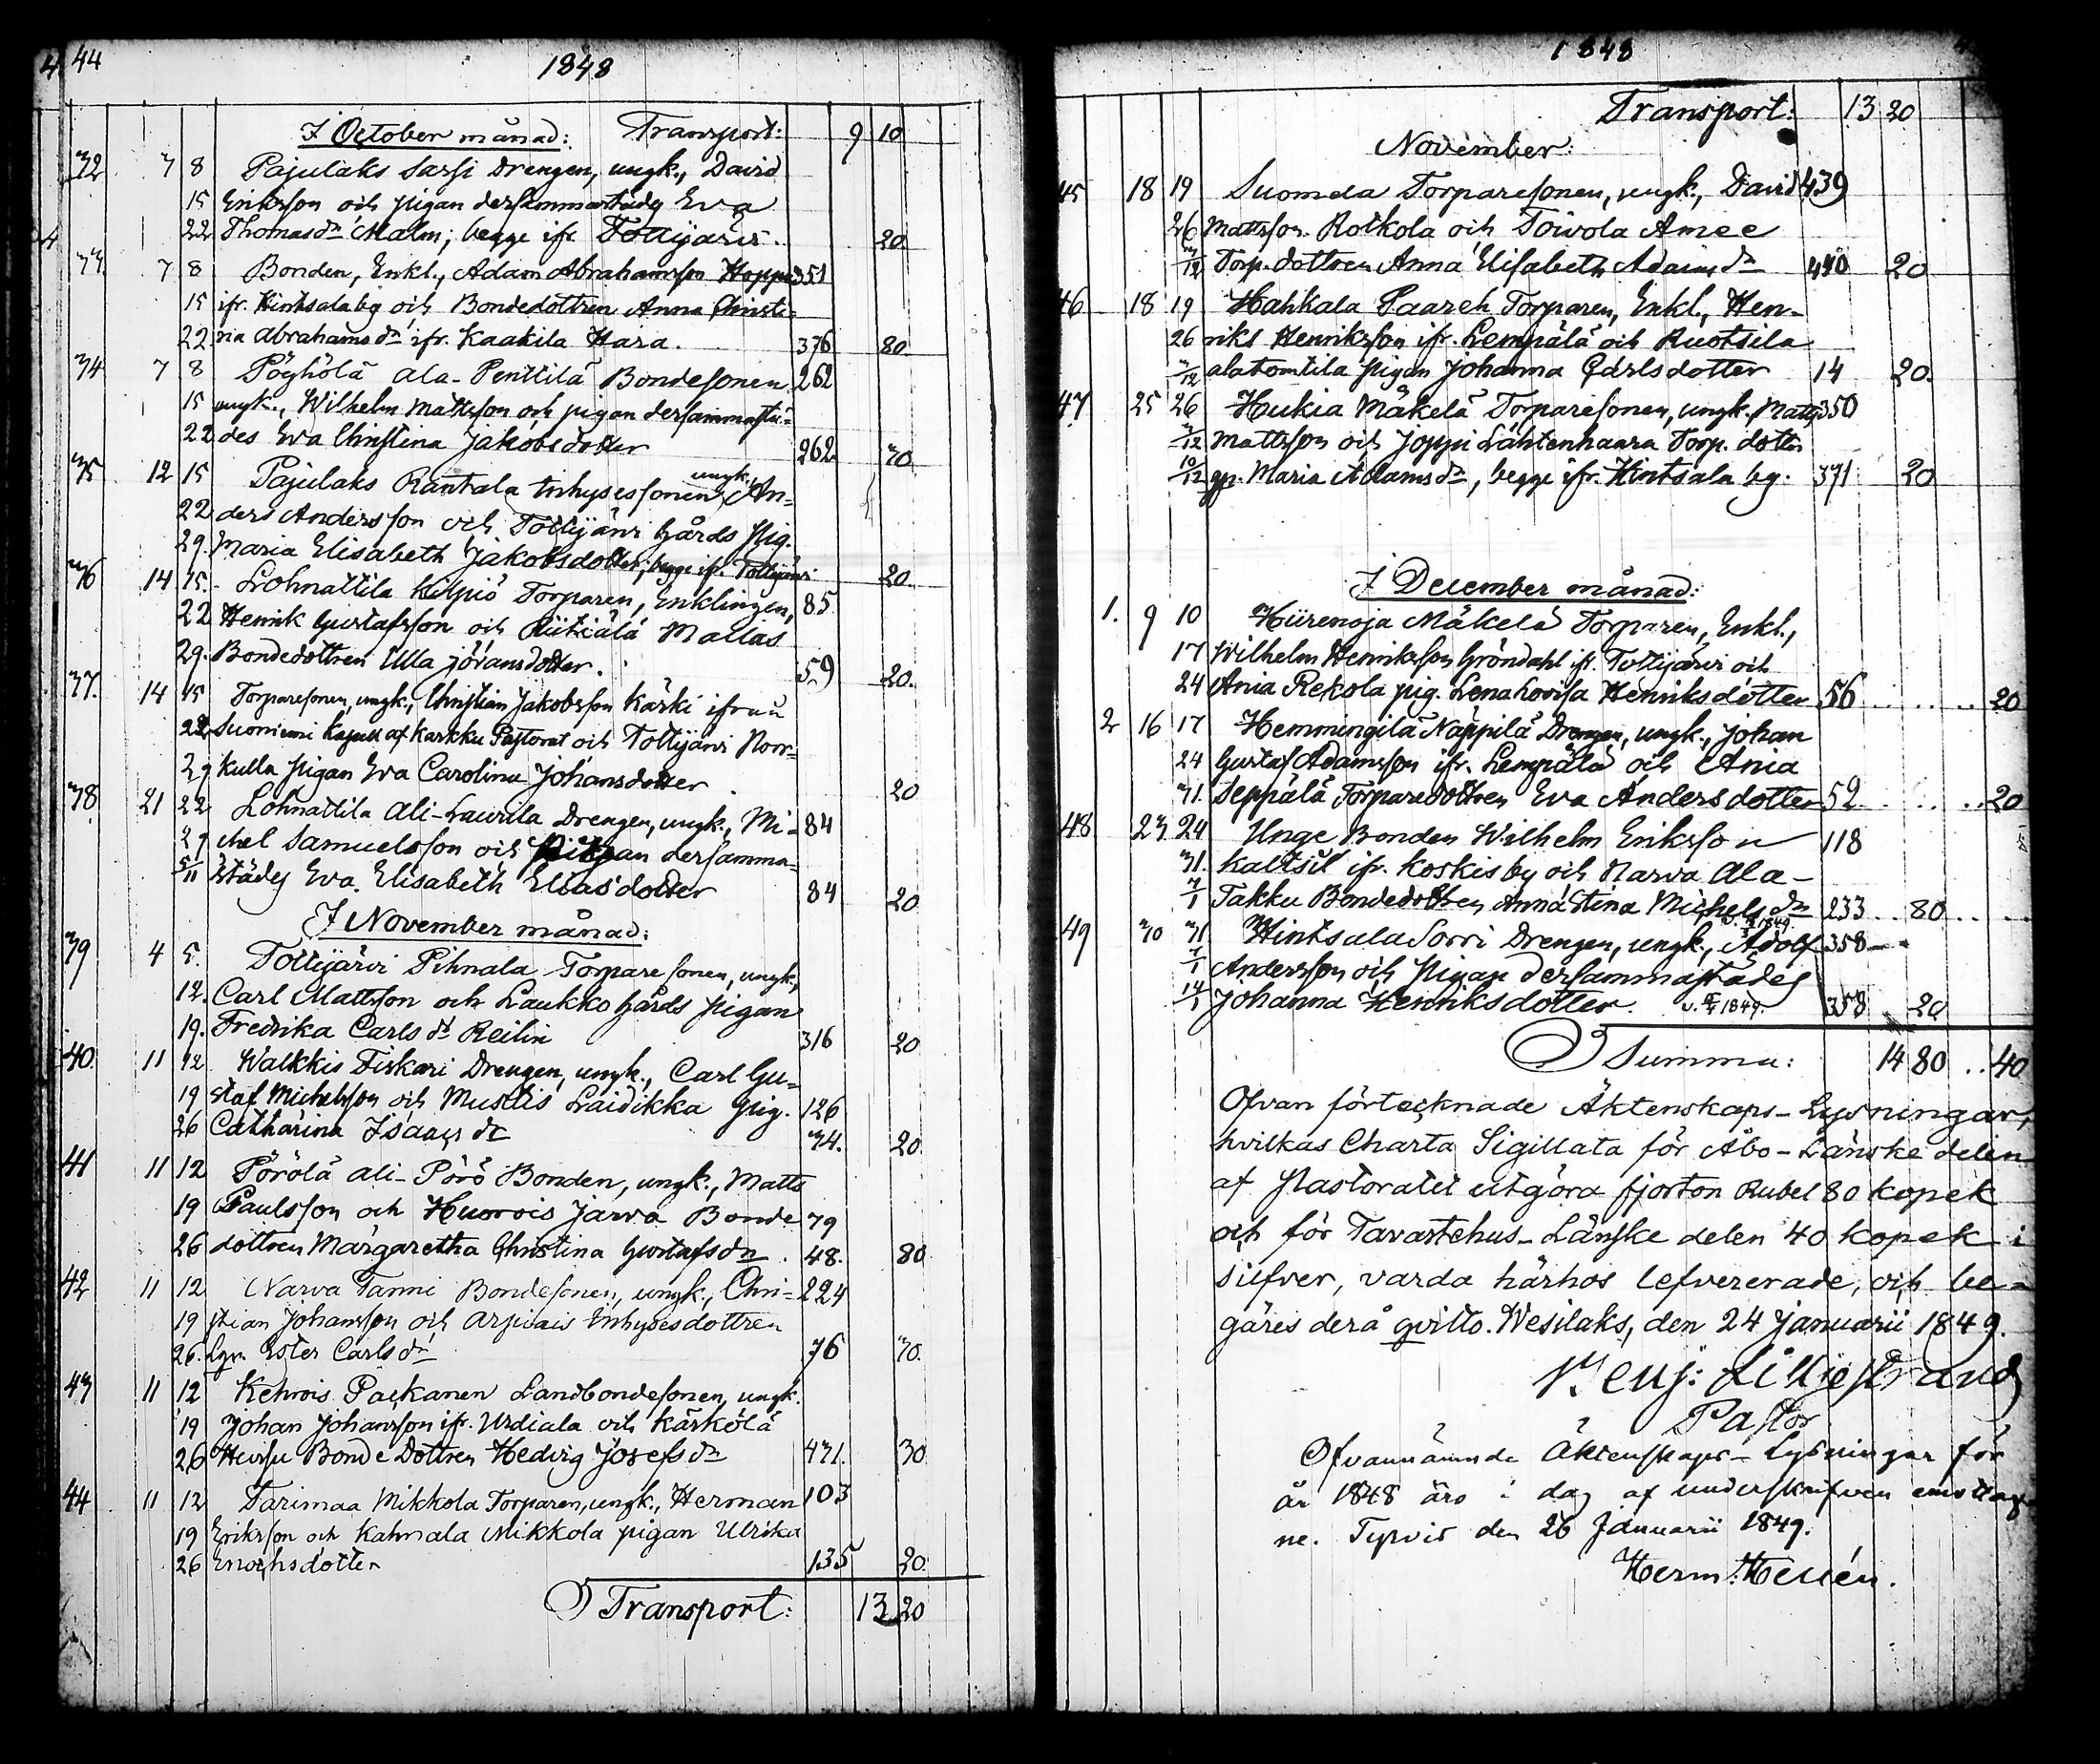 44
1848
I October månad: Transport: 9 10
32 7 8 Pajulaks Sassi Drengen, ungk., David
15 Eriksson och pigan dersammastädes Eva
22 Thomasdr Malm; begge ifr. Tottijärvi. 20
33. 7 8 Bonden, Enkl., Adam Abrahamsson Hoppu 351
15 ifr. Hintsala by och Bondedottren Anna Christi-
22 na Abrahamsdr ifr. Kaakila Hara. 376 80
34 7 8 Pöyhölä Ala-Penttilä Bondesonen 262
15 ungk., Wilhelm Mattsson och pigan dersammastä-
22 des Eva Christina Jakobsdotter 262 30.
35 12 15 Pajulaks Rantala Inhysessonen, ungk., An-
22 ders Andersson och Tottijärvi Gårds pig.
29. Maria Elisabeth Jakobsdotter, begge ifr. Tottijärvi 20.
36 14 15. Lohnattila Kilpiö Torparen, Enklingen, 85
22 Henrik Gustafsson och Riitiälä Mallas
29. Bondedottren Ulla Jöransdotter. 59 20.
37. 14 15 Torparesonen, ungk., Christian Jakobsson Kärki ifrån
22 Suoniemi Kapell af Karkku Pastorat och Tottijärvi Norr-
29 kulla pigan Eva Carolina Johansdotter. 20
38. 21 22 Lohnattila Ali-Laurila Drengen, ungk., Mi- 84
29 chel Samuelsson och Pigan dersamma-
5/11 städes Eva Elisabeth Eliasdotter 84 20
I November månad:
39 4 5. Tottijärvi Pihnala Torparesonen, ungk.,
12. Carl Mattsson och Laukko Gårds pigan
19. Fredrika Carlsdr Reilin 316 20
40. 11 12. Walkkis Fiskari Drengen, ungk., Carl Gu-
19 staf Michelsson och Mustis Laidikka pig. 126
26 Catharina Isaacsdr 34. 20.
41 11 12 Pörölä Ali-Pörö Bonden, ungk., Matts
19 Paulsson och Huorois Jarva Bonde 79
26 dottren Margaretha Christina Gustafsdr. 48. 80
42 11 12 Narva Tanni Bondesonen, ungk., Chri- 224
19 stian Johansson och Arpiais Inhysesdottren
26. Ester Carlsdr 76 30.
43 11 12 Kehrois Packanen Landbondesonen, ungk.
19 Johan Johansson ifr. Urdiala och Kärkölä
26 Heissu Bonde Dottren Hedvig Josefsdr 431. 30
44 11 12 Tarimaa Mikkola Torparen, ungk., Herman 103
19 Eriksson och Kahnala Mikkola pigan Ulrika
26 Enochsdotter 135 20.
Transport: 13 20
1848
Transport: 13 20
November:
45 18 19 Suomela Torparesonen, ungk., David 439
26 Mattsson Rotkola och Toivola Amee
3/12 Torp. dottren Anna Elisabeth Adamsdr 440 20
46 18 19 Hahkala Paareh Torparen, Enkl., Hen-
26 riks Henriksson ifr. Lempälä och Ruotsila
3/12 alatomtila pigan Johanna Carlsdotter 14 20.
47 25 26 Hukia Mäkelä Torparesonen, ungk. Matts 350
3/12 Mattsson och Joppi Lähtenhaara Torp. dottr
10/12 Maria Adamsdr, begge ifr. Hintsala by. 371 20
I December månad:
1. 9 10 Hiirenoja Mäkelä Torparen, Enkl.,
17 Wilhelm Henriksson Gröndahl ifr. Tottijärvi och
24 Ania Rekola pig. Lena Lovisa Henriksdotter 56 20
2 16 17 Hemmingilä Näppilä Drengen, ungk., Johan
24 Gustaf Adamsson ifr. Lempälä och Ania
31. Seppälä Torparedottren Eva Andersdotter 52 20
48 23 24 Unge Bonden Wilhelm Eriksson 118
31. Kaltsil ifr. Koskis by och Narva Ala-
7/1 Takku Bondedottren Anna Stina Michelsdr 233 80
49 30 31. Hintsala Sorri Drengen, ungk., Adolf 358
7/1 Andersson och Pigan dersammastädes
14/1 Johanna Henriksdotter. 1849. 358 20
Summa: 14 80 .. 40
Ofvan förtecknade Äktenskaps-Lysningar,
hvilkas Charta Sigillata för Åbo-Länske delen
af Pastoratet utgöra fjorton Rubel 80 kopek
och för Tavastehus-Länske delen 40 kopek i
silfver, varda härhos lefvererade, och be-
gäres derå qvitto. Wesilaks, den 24 Januarii 1849.
Benj: Lilljestrand
Pastor
Ofvannämnde Äktenskaps-Lysningar för
år 1848 äro i dag af underskrifven emottag-
ne. Tyrvis den 26 Januarii 1849.
Herm: Hellén.